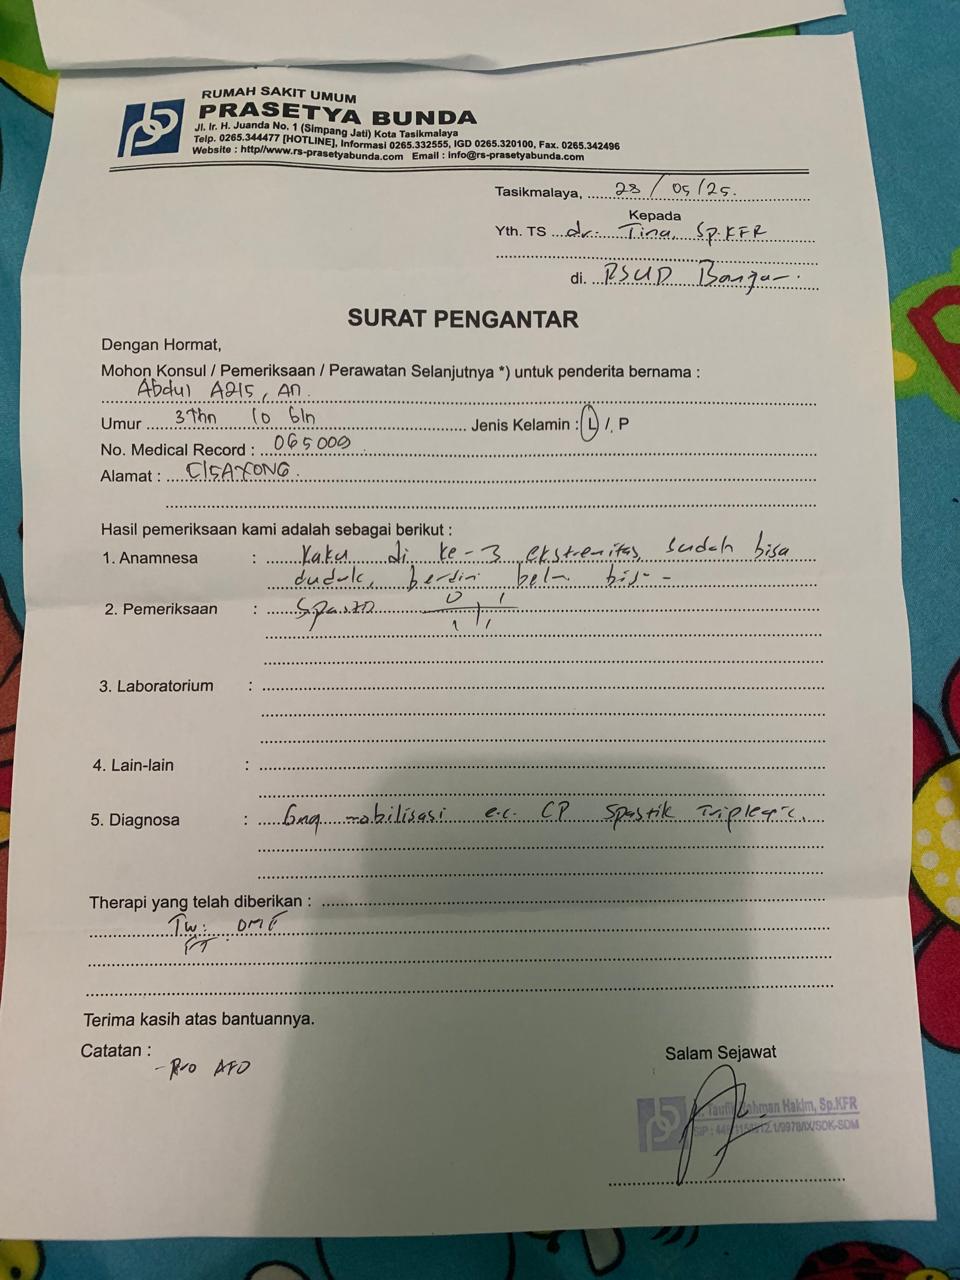 RUMAH SAKIT UMUM
PRASETYA BUNDA
Jl. Ir. H. Juanda No. 1 (Simpang Jati) Kota Tasikmalaya
Telp. 0265.344477 [HOTLINE], Informasi 0265.332555, IGD 0265.320100, Fax. 0265.342496
Website : http//www.rs-prasetyabunda.com Email : info@rs-prasetyabunda.com
Tasikmalaya, 28/05/25.
Kepada
Yth. TS dr. Tina, Sp.KFR
di. RSUD Banjar.
SURAT PENGANTAR
Dengan Hormat,
Mohon Konsul / Pemeriksaan / Perawatan Selanjutnya *) untuk penderita bernama :
Abdul Azis, An.
Umur 3 Thn 10 bln Jenis Kelamin : L / P
No. Medical Record : 065009
Alamat : CISAYONG.
Hasil pemeriksaan kami adalah sebagai berikut :
1. Anamnesa : Kaku di ke-3 ekstremitas, sudah bisa
duduk, berdiri belum bisa
2. Pemeriksaan :
3. Laboratorium :
4. Lain-lain :
5. Diagnosa : Gng mobilisasi e.c. CP Spastik Triplegic,
Therapi yang telah diberikan :
OMF
FT
Terima kasih atas bantuannya.
Catatan :
- Pro AFO
Salam Sejawat
Hakim, Sp.KFR